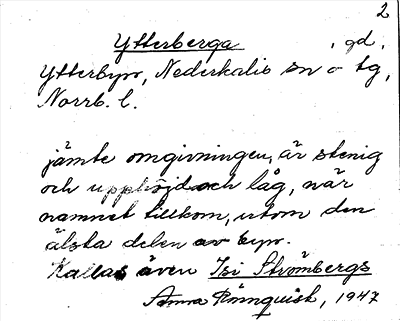 2
Ytterberga , gd,
Ytterbyn, Nederkalix sn o tg,
Norrb. l.
jämte omgivningen, är stenig
och upphöjd och låg, när
namnet tillkom, utom den
älsta delen av byn.
Kallas även Isi Strömbergs
Anna Rönnquist, 1947